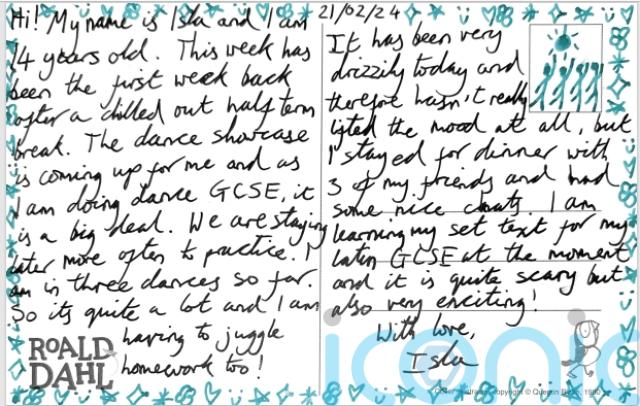 Hi! My name is Isla and I am
14 years old. This week has
been the first week back
after a chilled out half term
break. The dance showcase
is coming up for me and as
I am doing dance GCSE, it
is a big deal. We are staying
later more often to practice. I
am in three dances so far.
So its quite a lot and I am
having to juggle
homework too!
ROALD
DAHL
21/02/24
It has been very
drizzily today and
therefore hasn't really
lifted the mood at all, but
I stayed for dinner with
3 of my friends and had
some nice chats. I am
learning my set text for my
latin GCSE at the moment
and it is quite scary but
also very exciting!
With love,
Isla
iconic
© Quentin Blake